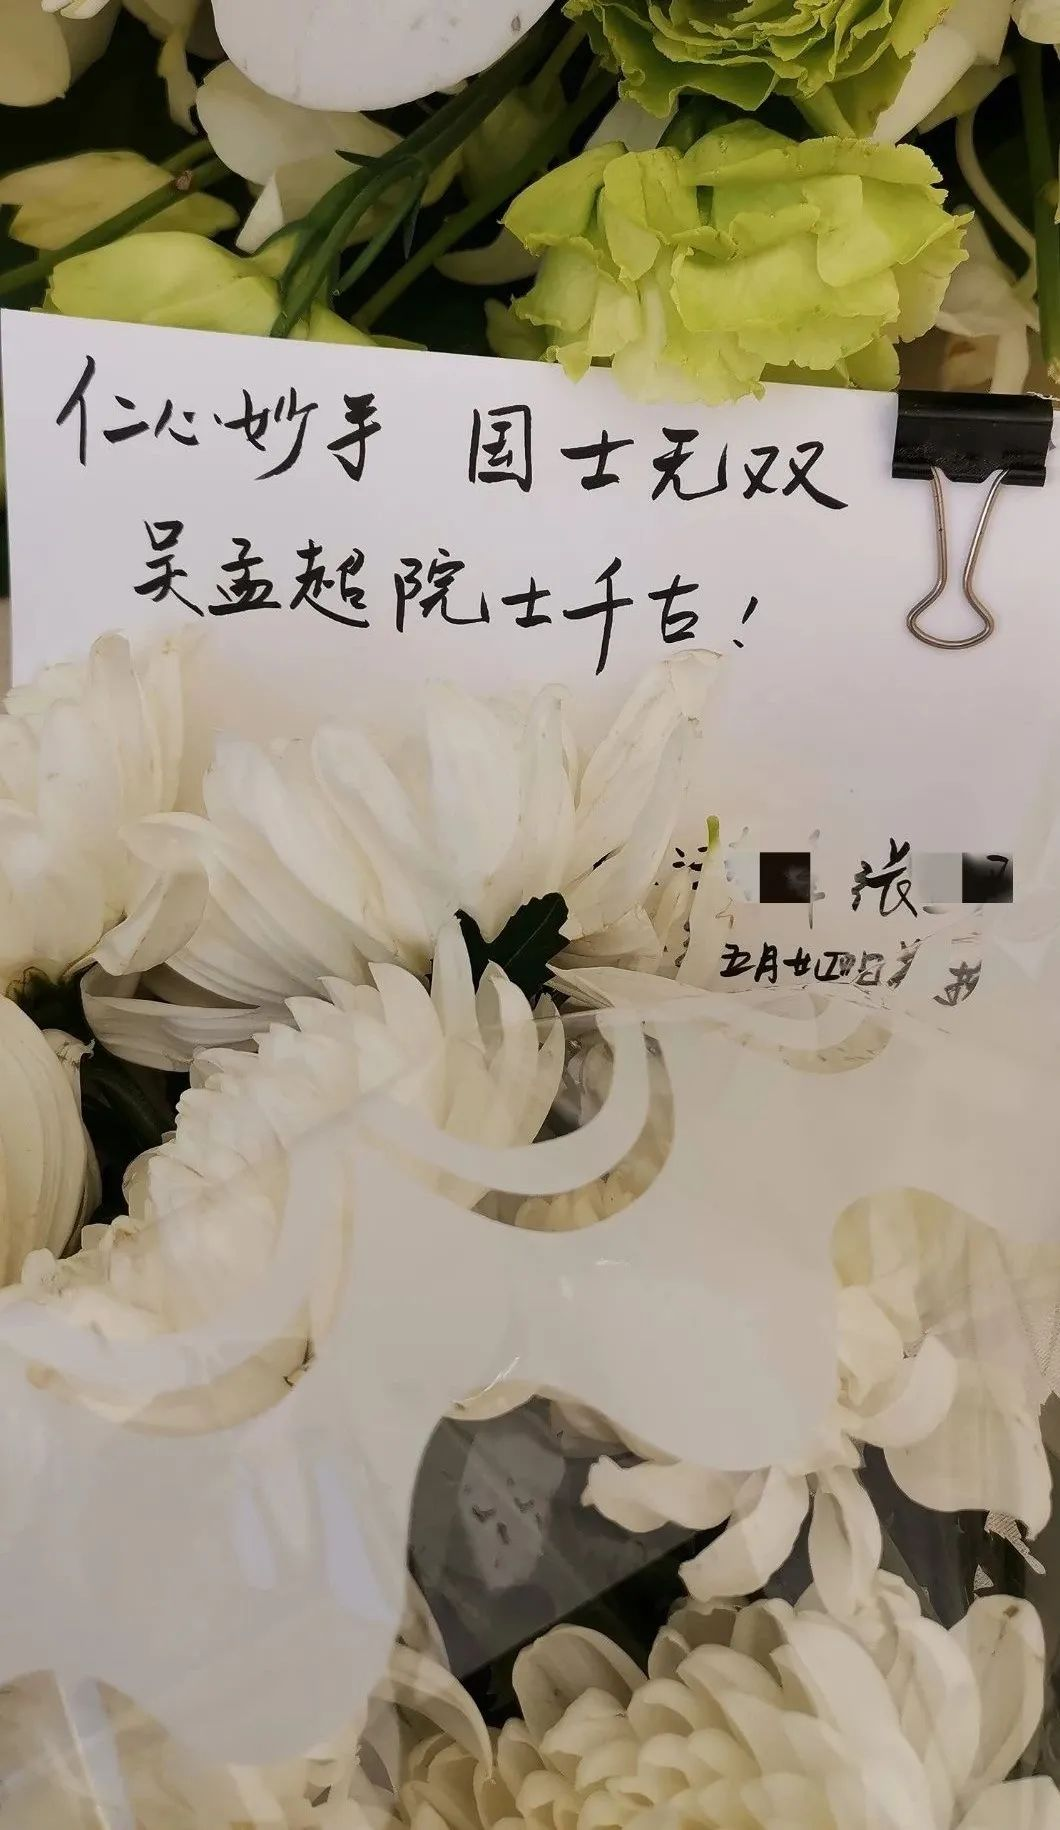 仁心妙手 国士无双
吴孟超院士千古！
张
五月廿四日